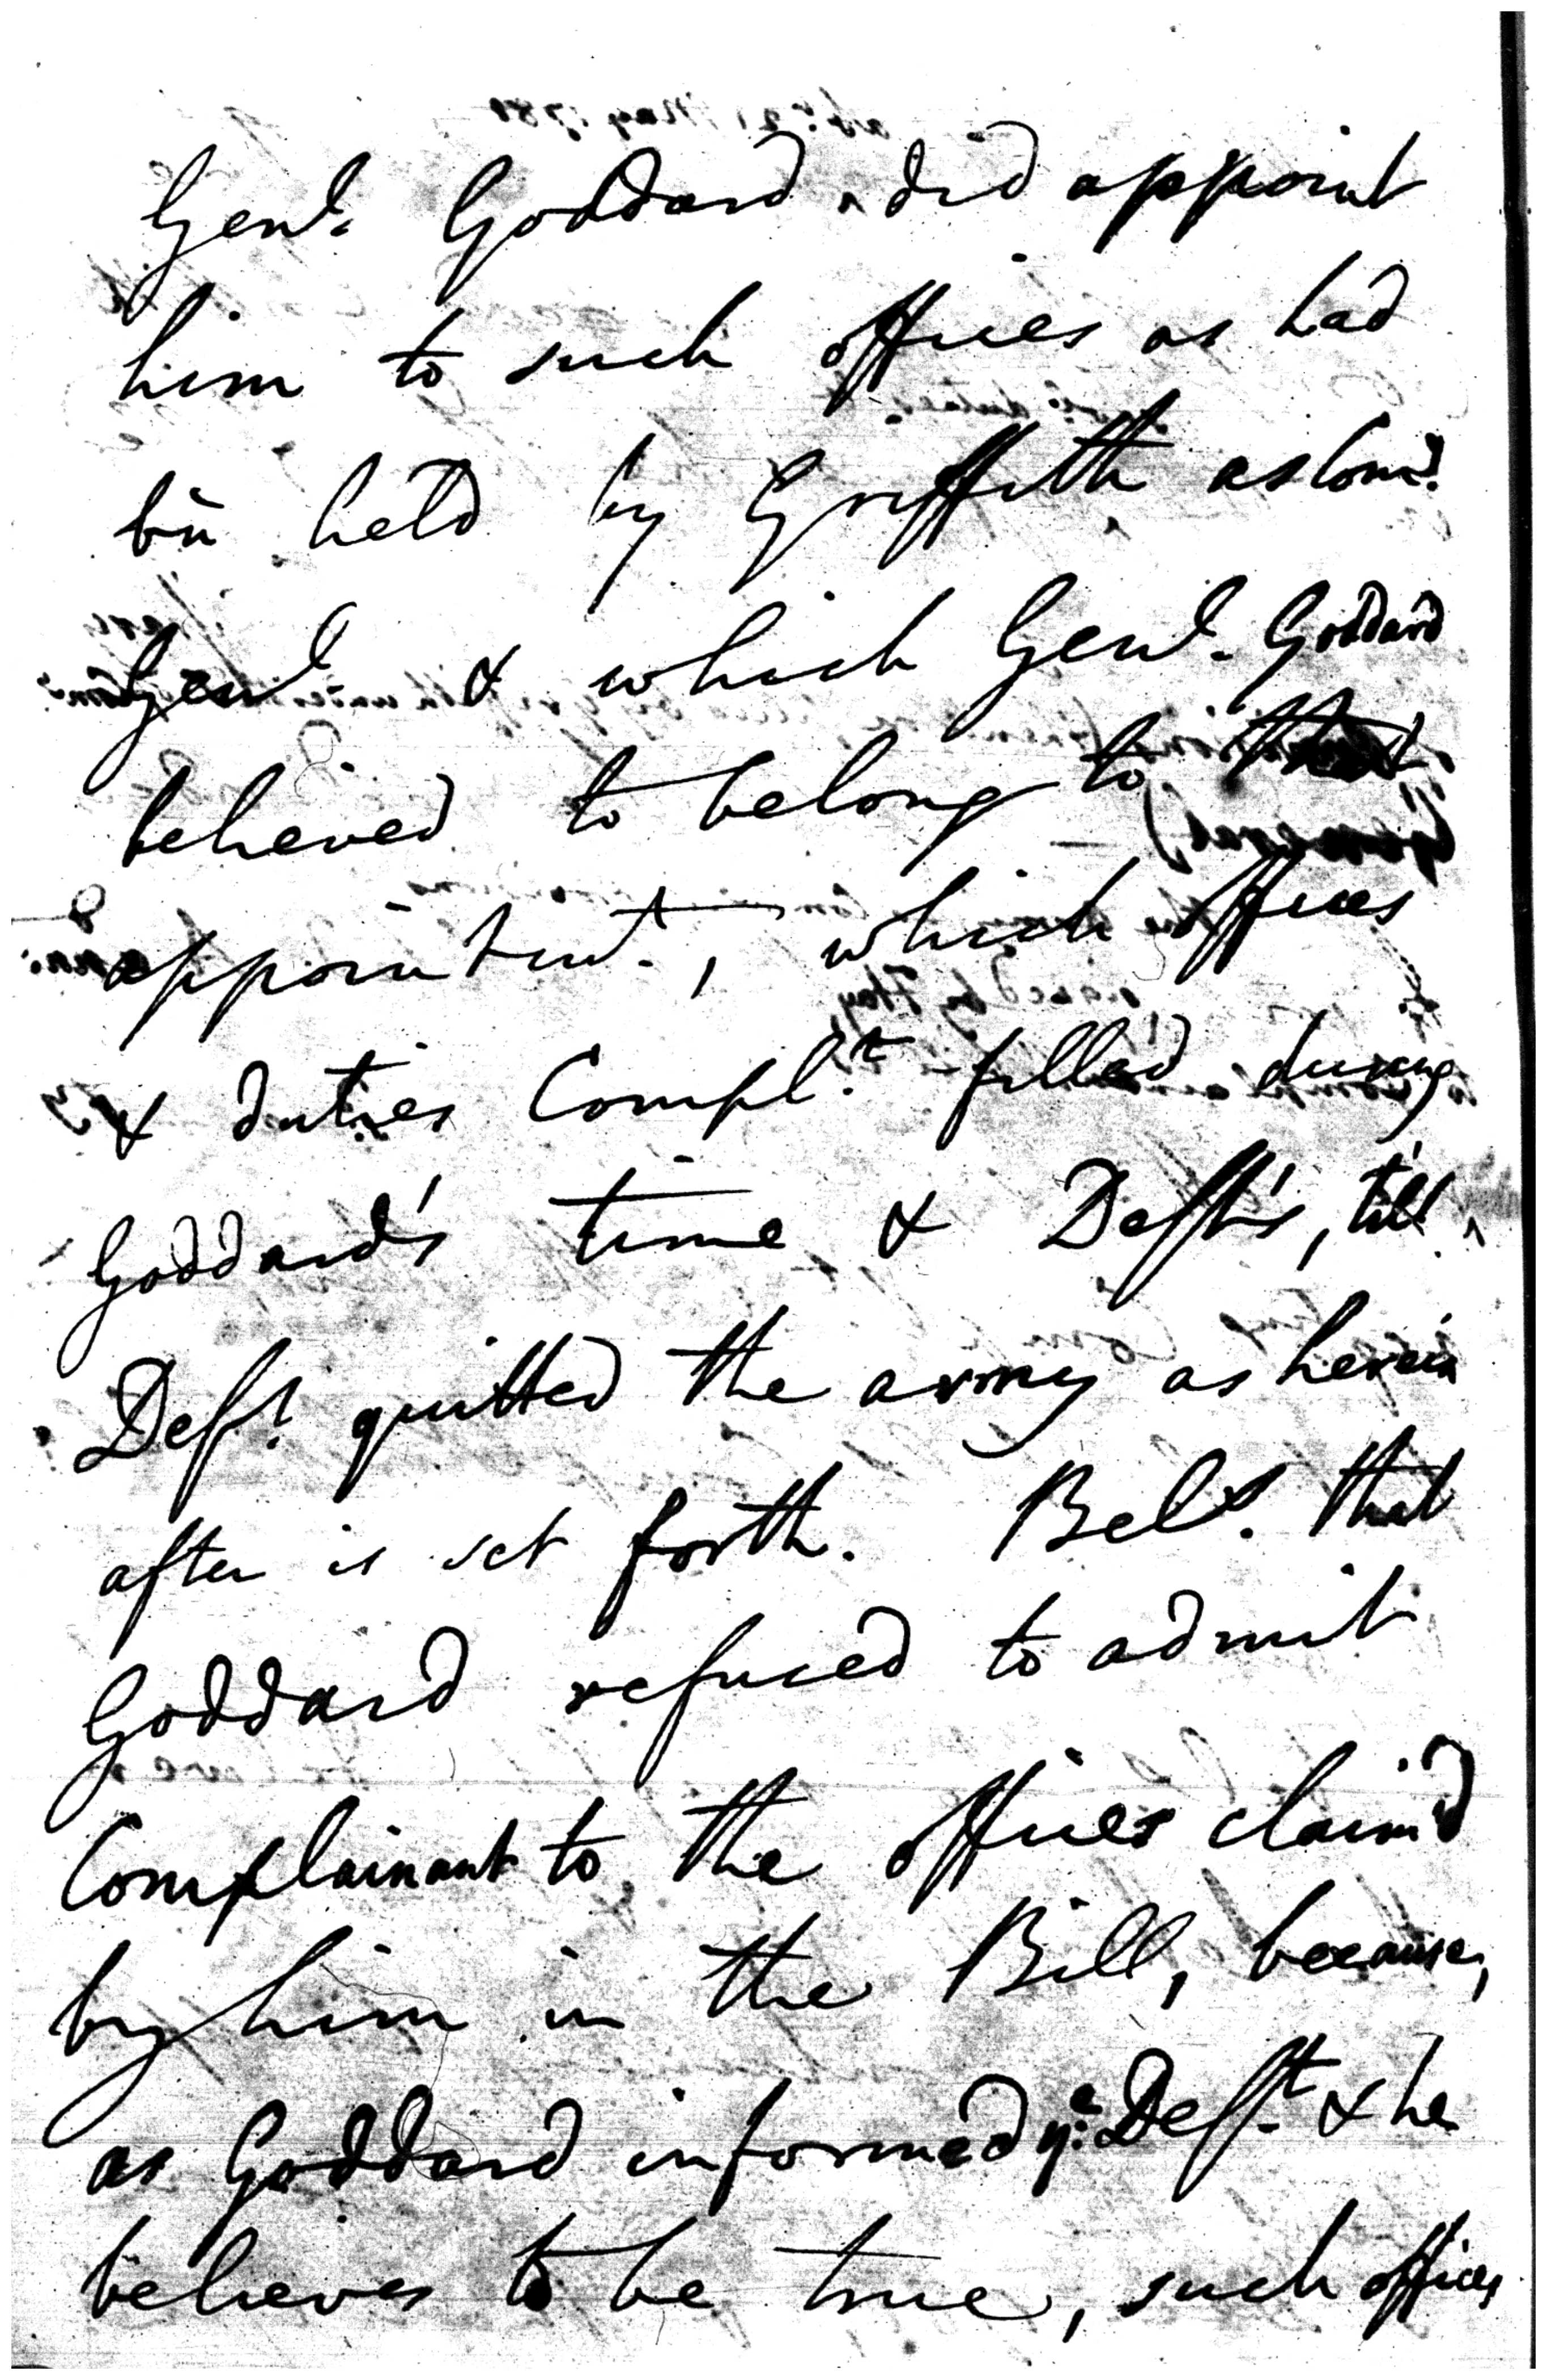 Genl. Goddard did appoint
him to such offices as had
bn held by Griffith as Com.y
Genl & which Genl. Goddard
believed to belong to that
appointmt., which offices
& duties Compl.t filled during
Goddard's time & Deft's, till
Def.t quitted the army as herein
after is set forth. Bels. that
Goddard refused to admit
Complainant to the offices claim'd
by him in the Bill, because,
as Goddard informed ye. Def.t & he
believes to be true, such offices